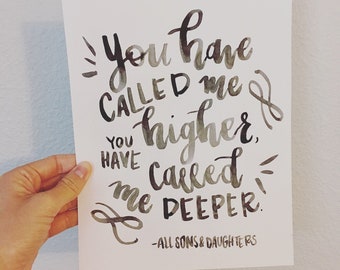 You have
CALLED me
YOU HAVE higher,
Called
me DEEPER.
-ALL SONS & DAUGHTERS